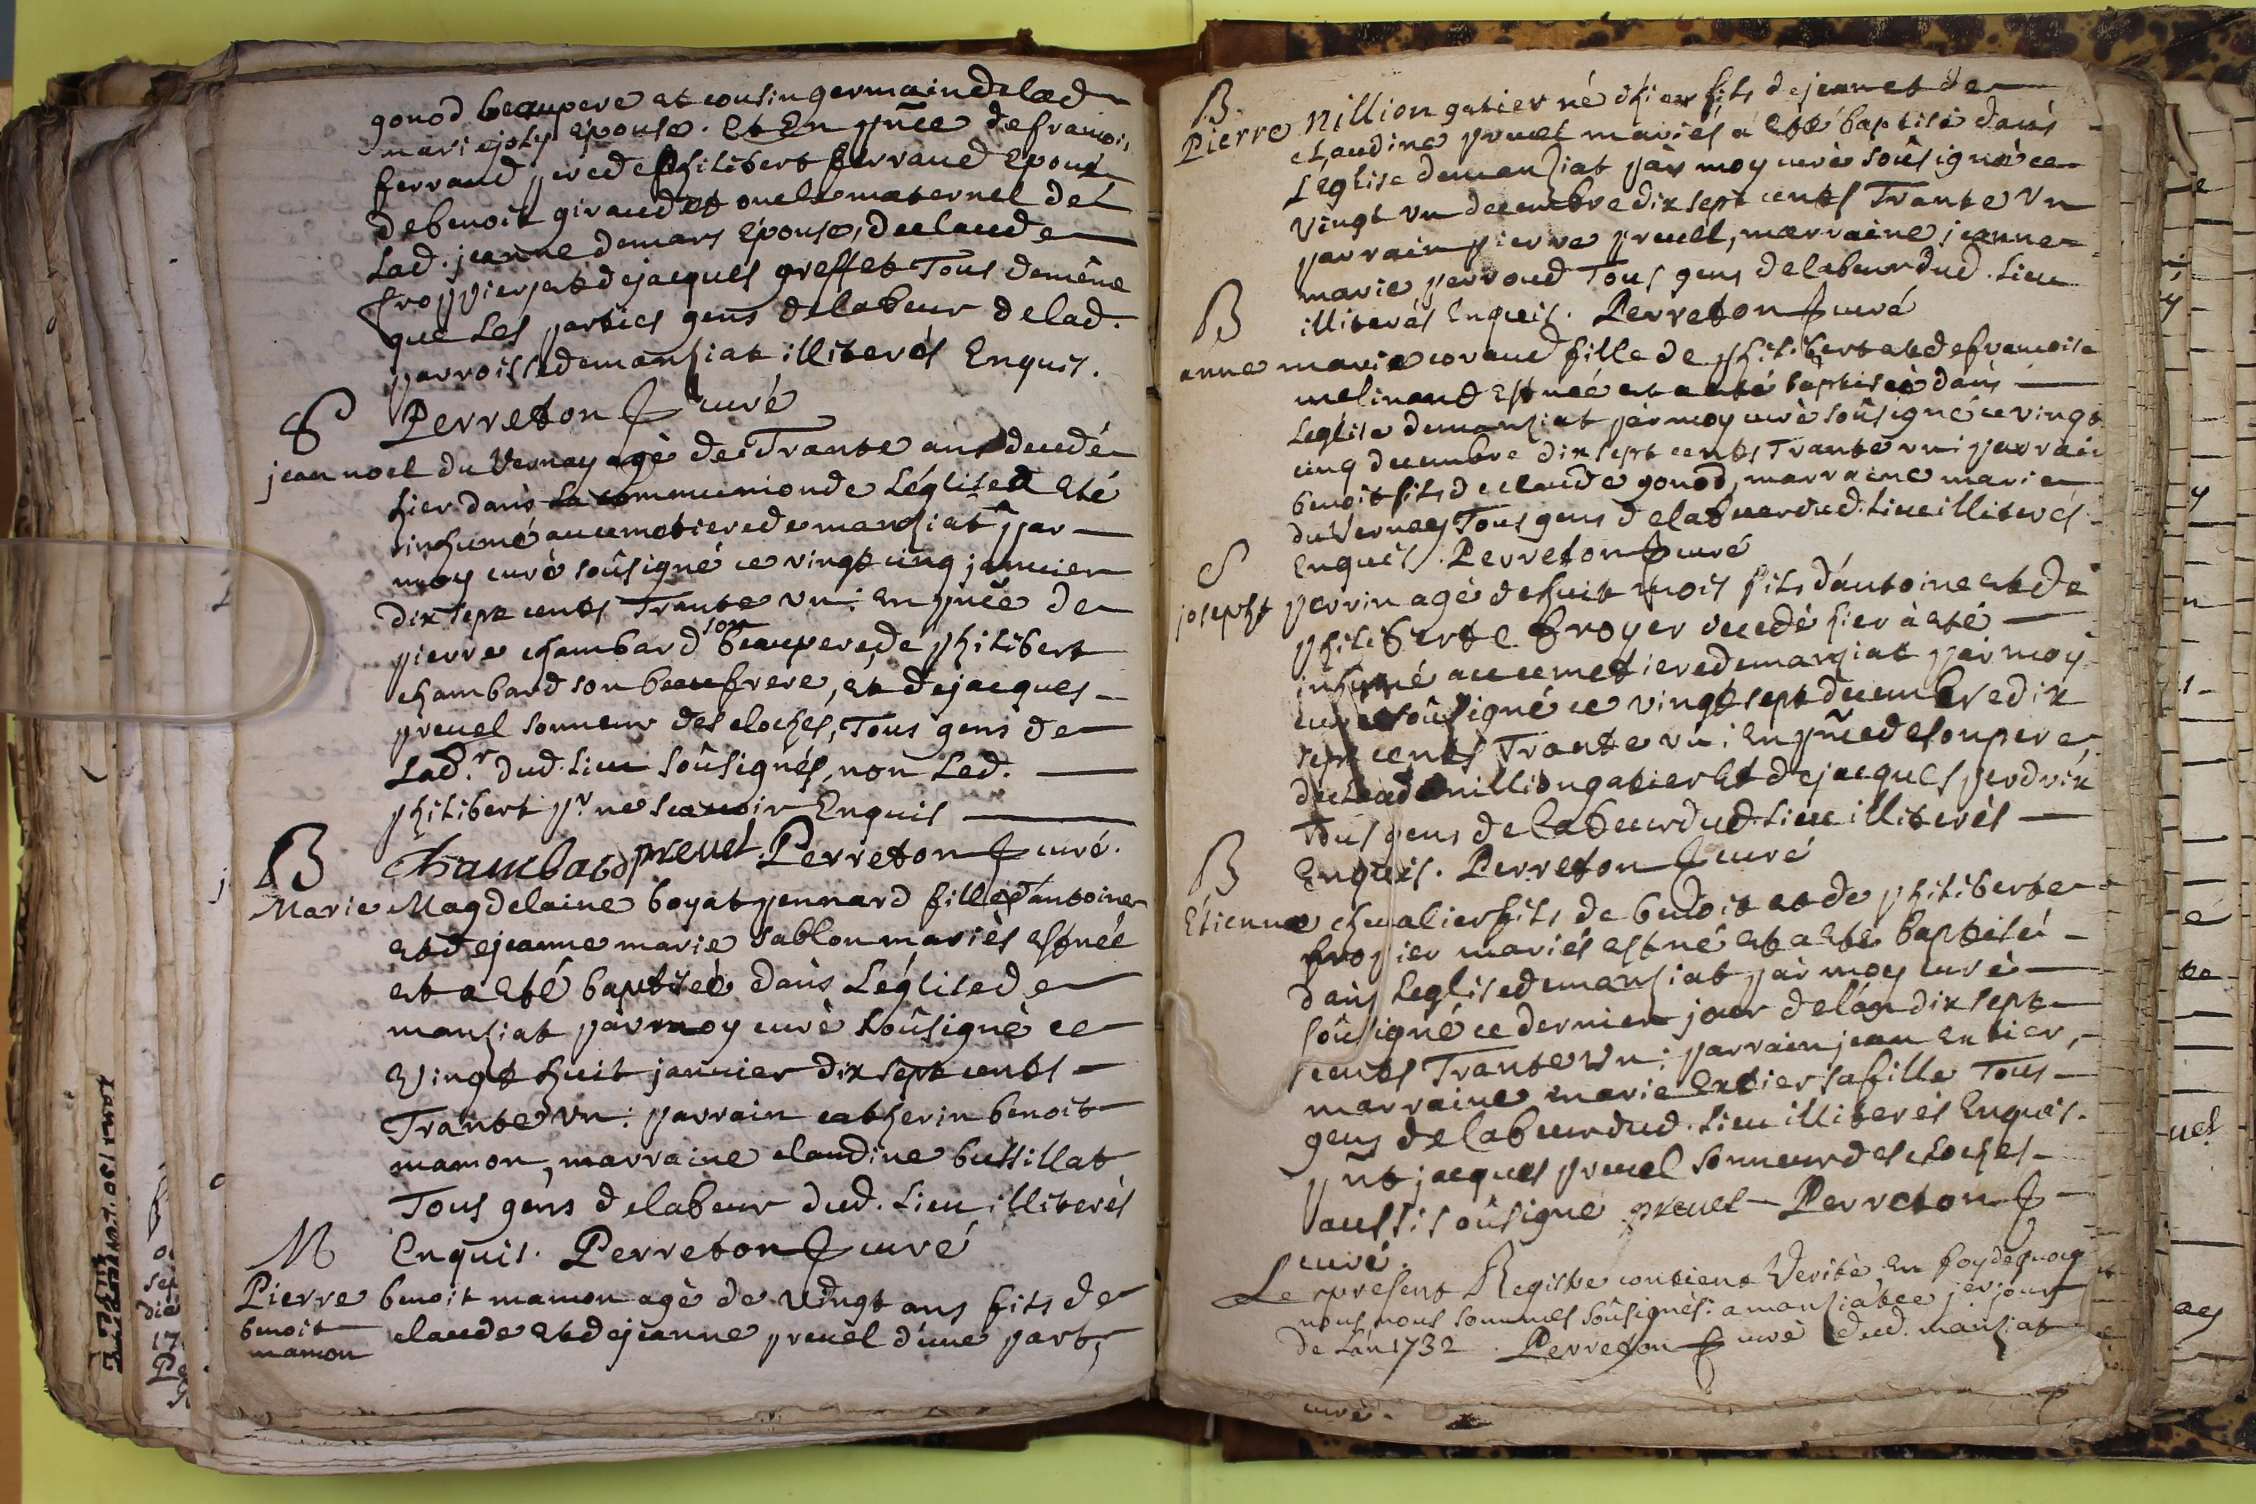 gonod beaupere et cousin germain de lad
marie joly épouse. Et En pñce de francois
ferraud pere de philibert ferraud Epoux
de benoite giraud et oncle maternel de
Lad. jeanne demars épouse, de claude
froppier et de jacques greffet Tous de même
que Les parties gens de labeur de lad.
parroisse de manziat illiterés Enquis.
Perreton curé
S
jean noel du Vernay agé de Trante ans decedé
hier dans La communion de L'église a Eté
inhumé au cemetiere de manziat par
moy curé soûsigné ce vingt cinq janvier
dix sept cents Trante vn: En pñce de
pierre chambard son beaupere, de philibert
chambard son beaufrere, et de jacques
preuel sonneur des cloches, Tous gens de
Lad.r dud. Lieu soûsignés, non Led.
philibert pr. ne scavoir Enquis
Chambard preuel. Perreton curé.
B
Marie Magdelaine boyat pennard fille d'antoine
et de jeanne marie sablon mariés est née
et a eté baptisée dans L'église de
manziat par moy curé soûsigné ce
Vingt huit janvier dix sept cents
Trante vn: parrain catherin benoit
mamon, marraine claudine bussillat
Tous gens de labeur dud. Lieu illiterés
Enquis. Perreton curé
M
Pierre benoit mamon agé de vingt ans fils de
benoit claude et de jeanne preuel d'une part,
mamon
B
Pierre Nillion gatier né hier fils de jean et de
claudine preuel mariés a eté baptisé dans
L'église de manziat par moy curé soûsigné ce
vingt vn decembre dix sept cents Trante vn
parrain pierre preuel, marraine jeanne
marie perroud Tous gens de labeur dud. Lieu
illiterés Enquis. Perreton curé
B
anne marie corand fille de philibert et de francoise
melinand est née et a eté baptisée dans
L'eglise de manziat par moy curé soûsigné ce vingt
cinq decembre dix sept cents Trante vn: parrain
benoit fils de claude gonod, marraine marie
du Vernay Tous gens de labeur dud. Lieu illiterés
Enquis. Perreton curé
S
josepht perrin agé de huit mois fils d'antoine et de
philiberte broyer decedé hier a eté
inhumé au cemetiere de manziat par moy
curé soûsigné ce vingt sept decembre dix
sept cents Trante vn: En pñce de son pere,
de claude nillion gatier Et de jacques perdrix
Tous gens de labeur dud. Lieu illiterés
Enquis. Perreton curé
B
Etienne chevalier fils de benoit et de philiberte
froppier mariés est né et a eté baptisé
dans L'eglise de manziat par moy curé
soûsigné ce dernier jour de l'an dix sept
cents Trante vn: parrain jean Entier,
marraine marie Entier sa fille Tous
gens de labeur dud. Lieu illiterés Enquis.
pñt jacques preuel sonneur des cloches
aussi soûsigné preuel Perreton
curé.
Le present Registre contient Verité en foy de quoy
nous nous sommes soûsignés: a manziat ce jer jour
de L'an 1732 Perreton curé dud. manziat
curé.